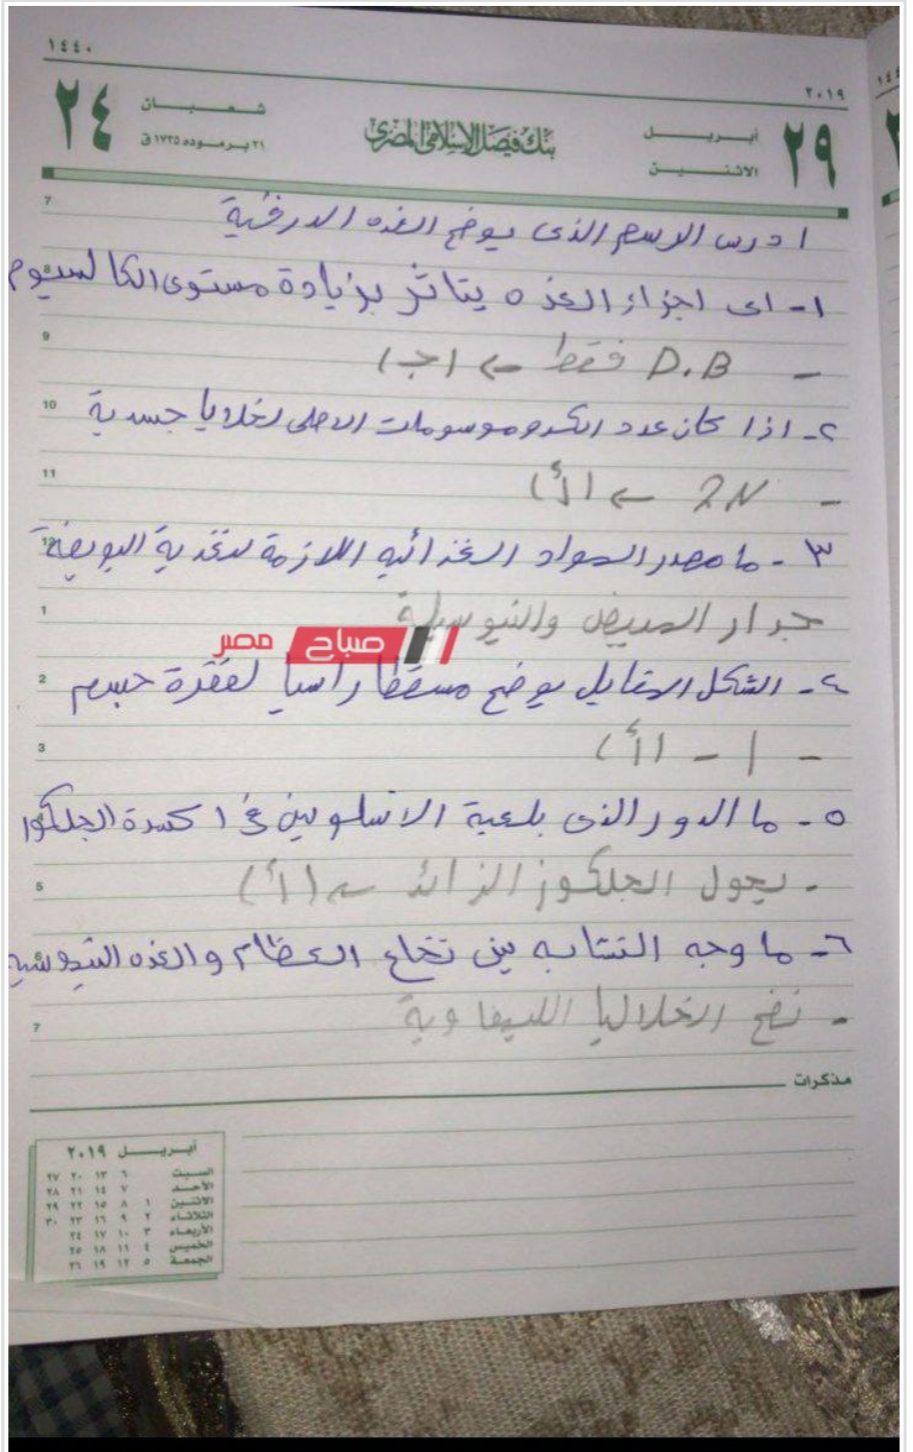 ١٤٤٠
٢٠١٩
٢٤
شعبان
٢١ برموده ١٧٣٥ ق
بنك فيصل الإسلامي المصري
أبريل
الاثنين
٢٩
7
ادرس الرسم الذى يوضح الغده الدرقية
١- اى اجزاء الغده يتاثر بزيادة مستوى الكالسيوم
9
- D.B فقط ← (ج)
10
٢- اذا كان عدد الكروموسومات الاصلى لخلايا جسدية
11
- 2N ← (أ)
12
٣- ما مصدر المواد الغذائيه اللازمة لتغذية البويضة
1
جدار المبيض والنيوسيلة
صباح مصر
2
٤- الشكل المقابل يوضح مسقطا راسيا لفقرة جسم
3
- ا - (أ)
٥- ما الدور الذى يلعبة الانسولين فى اكسدة الجلكوز
5
- يحول الجلكوز الزائد ← (أ)
٦- ما وجه التشابه بين نخاع العظام والغده التيموسية
7
- نضج الخلاليا الليمفاوية
مذكرات
أبريل ٢٠١٩
السبت ٦ ١٣ ٢٠ ٢٧
الأحد ٧ ١٤ ٢١ ٢٨
الاثنين ١ ٨ ١٥ ٢٢ ٢٩
الثلاثاء ٢ ٩ ١٦ ٢٣ ٣٠
الأربعاء ٣ ١٠ ١٧ ٢٤
الخميس ٤ ١١ ١٨ ٢٥
الجمعة ٥ ١٢ ١٩ ٢٦